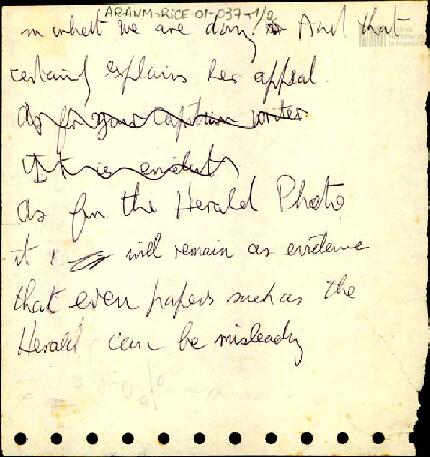 AR-ANM-RICE-01-037-1/2
in what we are doing. And that
certainly explains her appeal.
As for your caption writer
It is evident
As for the Herald Photo
it will remain as evidence
that even papers such as the
Herald can be misleading